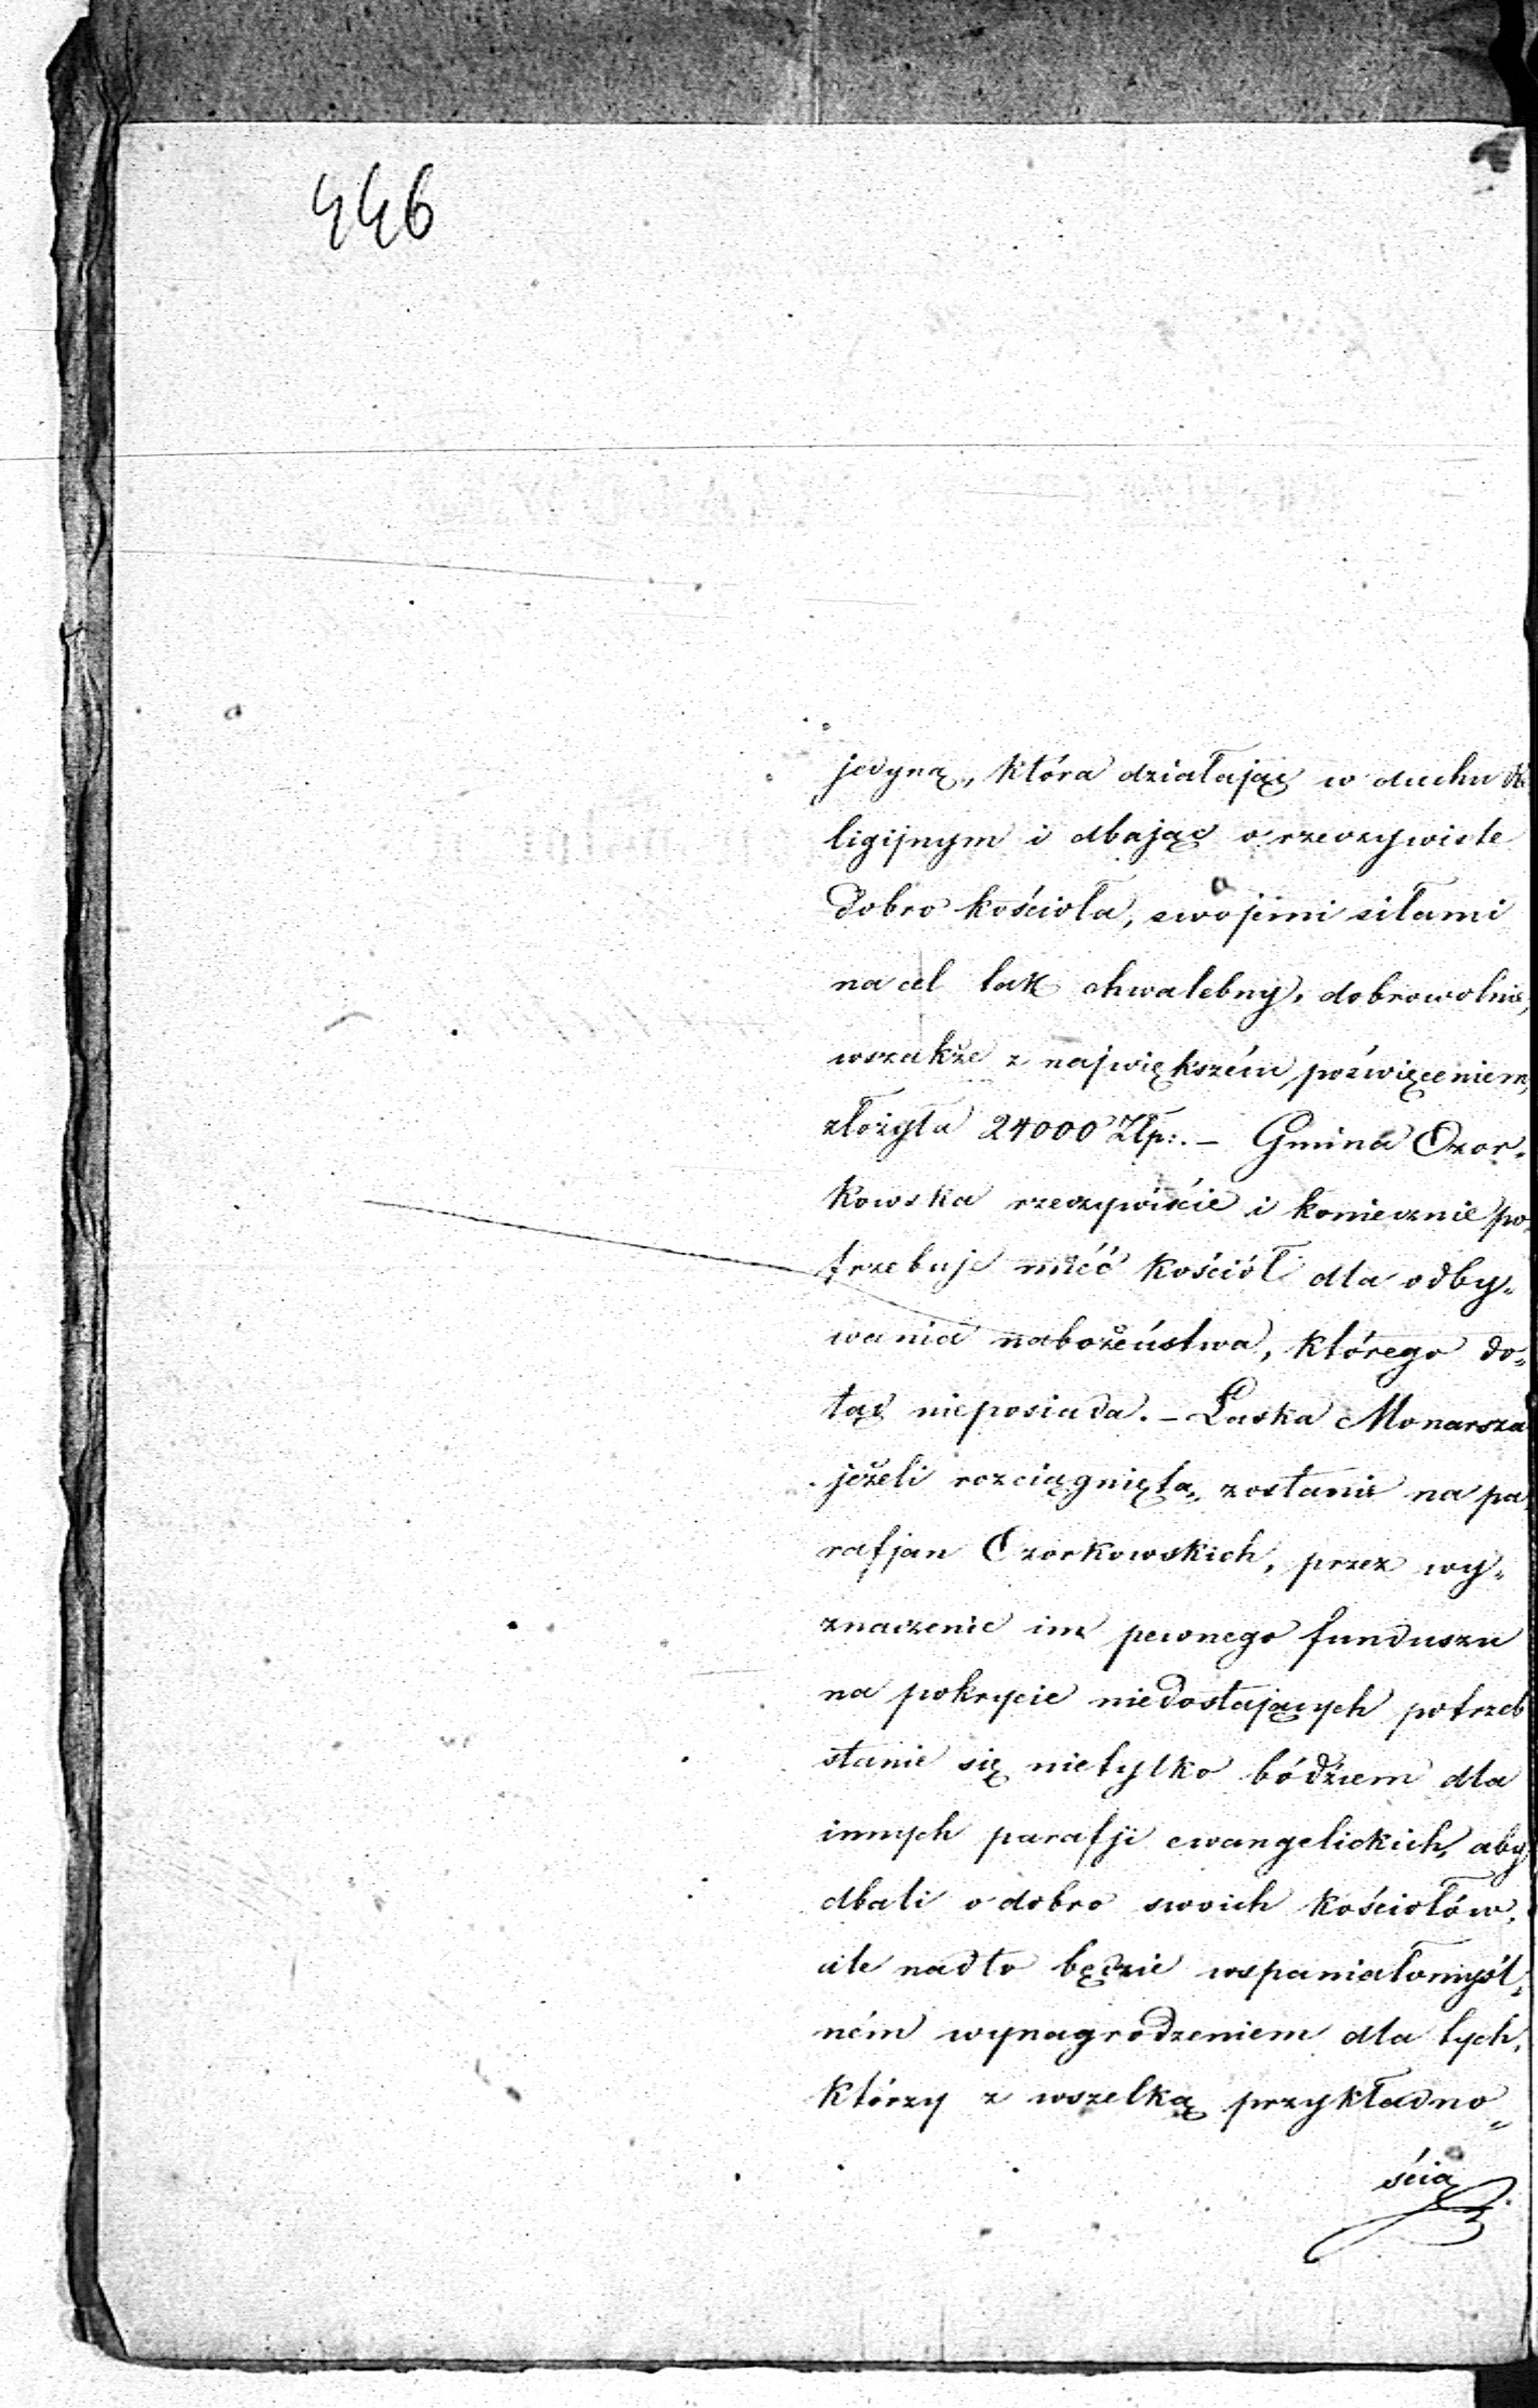 446
jedyną, która działając w duchu re
ligijnym i dbając o rzeczywiste
dobro kościoła, swojemi siłami
na cel tak chwalebny, dobrowolnie,
wszakże z największém poświęceniem,
złożyła 24000 Złp:. – Gmina Ozor„
kowska rzeczywiście i koniecznie po„
trzebuje mieć kościół dla odby„
wania nabożeństwa, którego do„
tąd nieposiada. – Łaska Monarsza
jeżeli rozciągniętą, zostanie na pa
rafjan Ozorkowskich, przez wy„
znaczenie im pewnego funduszu
na pokrycie niedostających potrzeb
stanie się nietylko bódźcem dla
innych parafji ewangelickich, aby
dbali o dobro swoich kościołów,
ale nadto będzie wspaniałomyśl„
ném wynagrodzeniem dla tych,
którzy z wszelką przykładno„
ścią